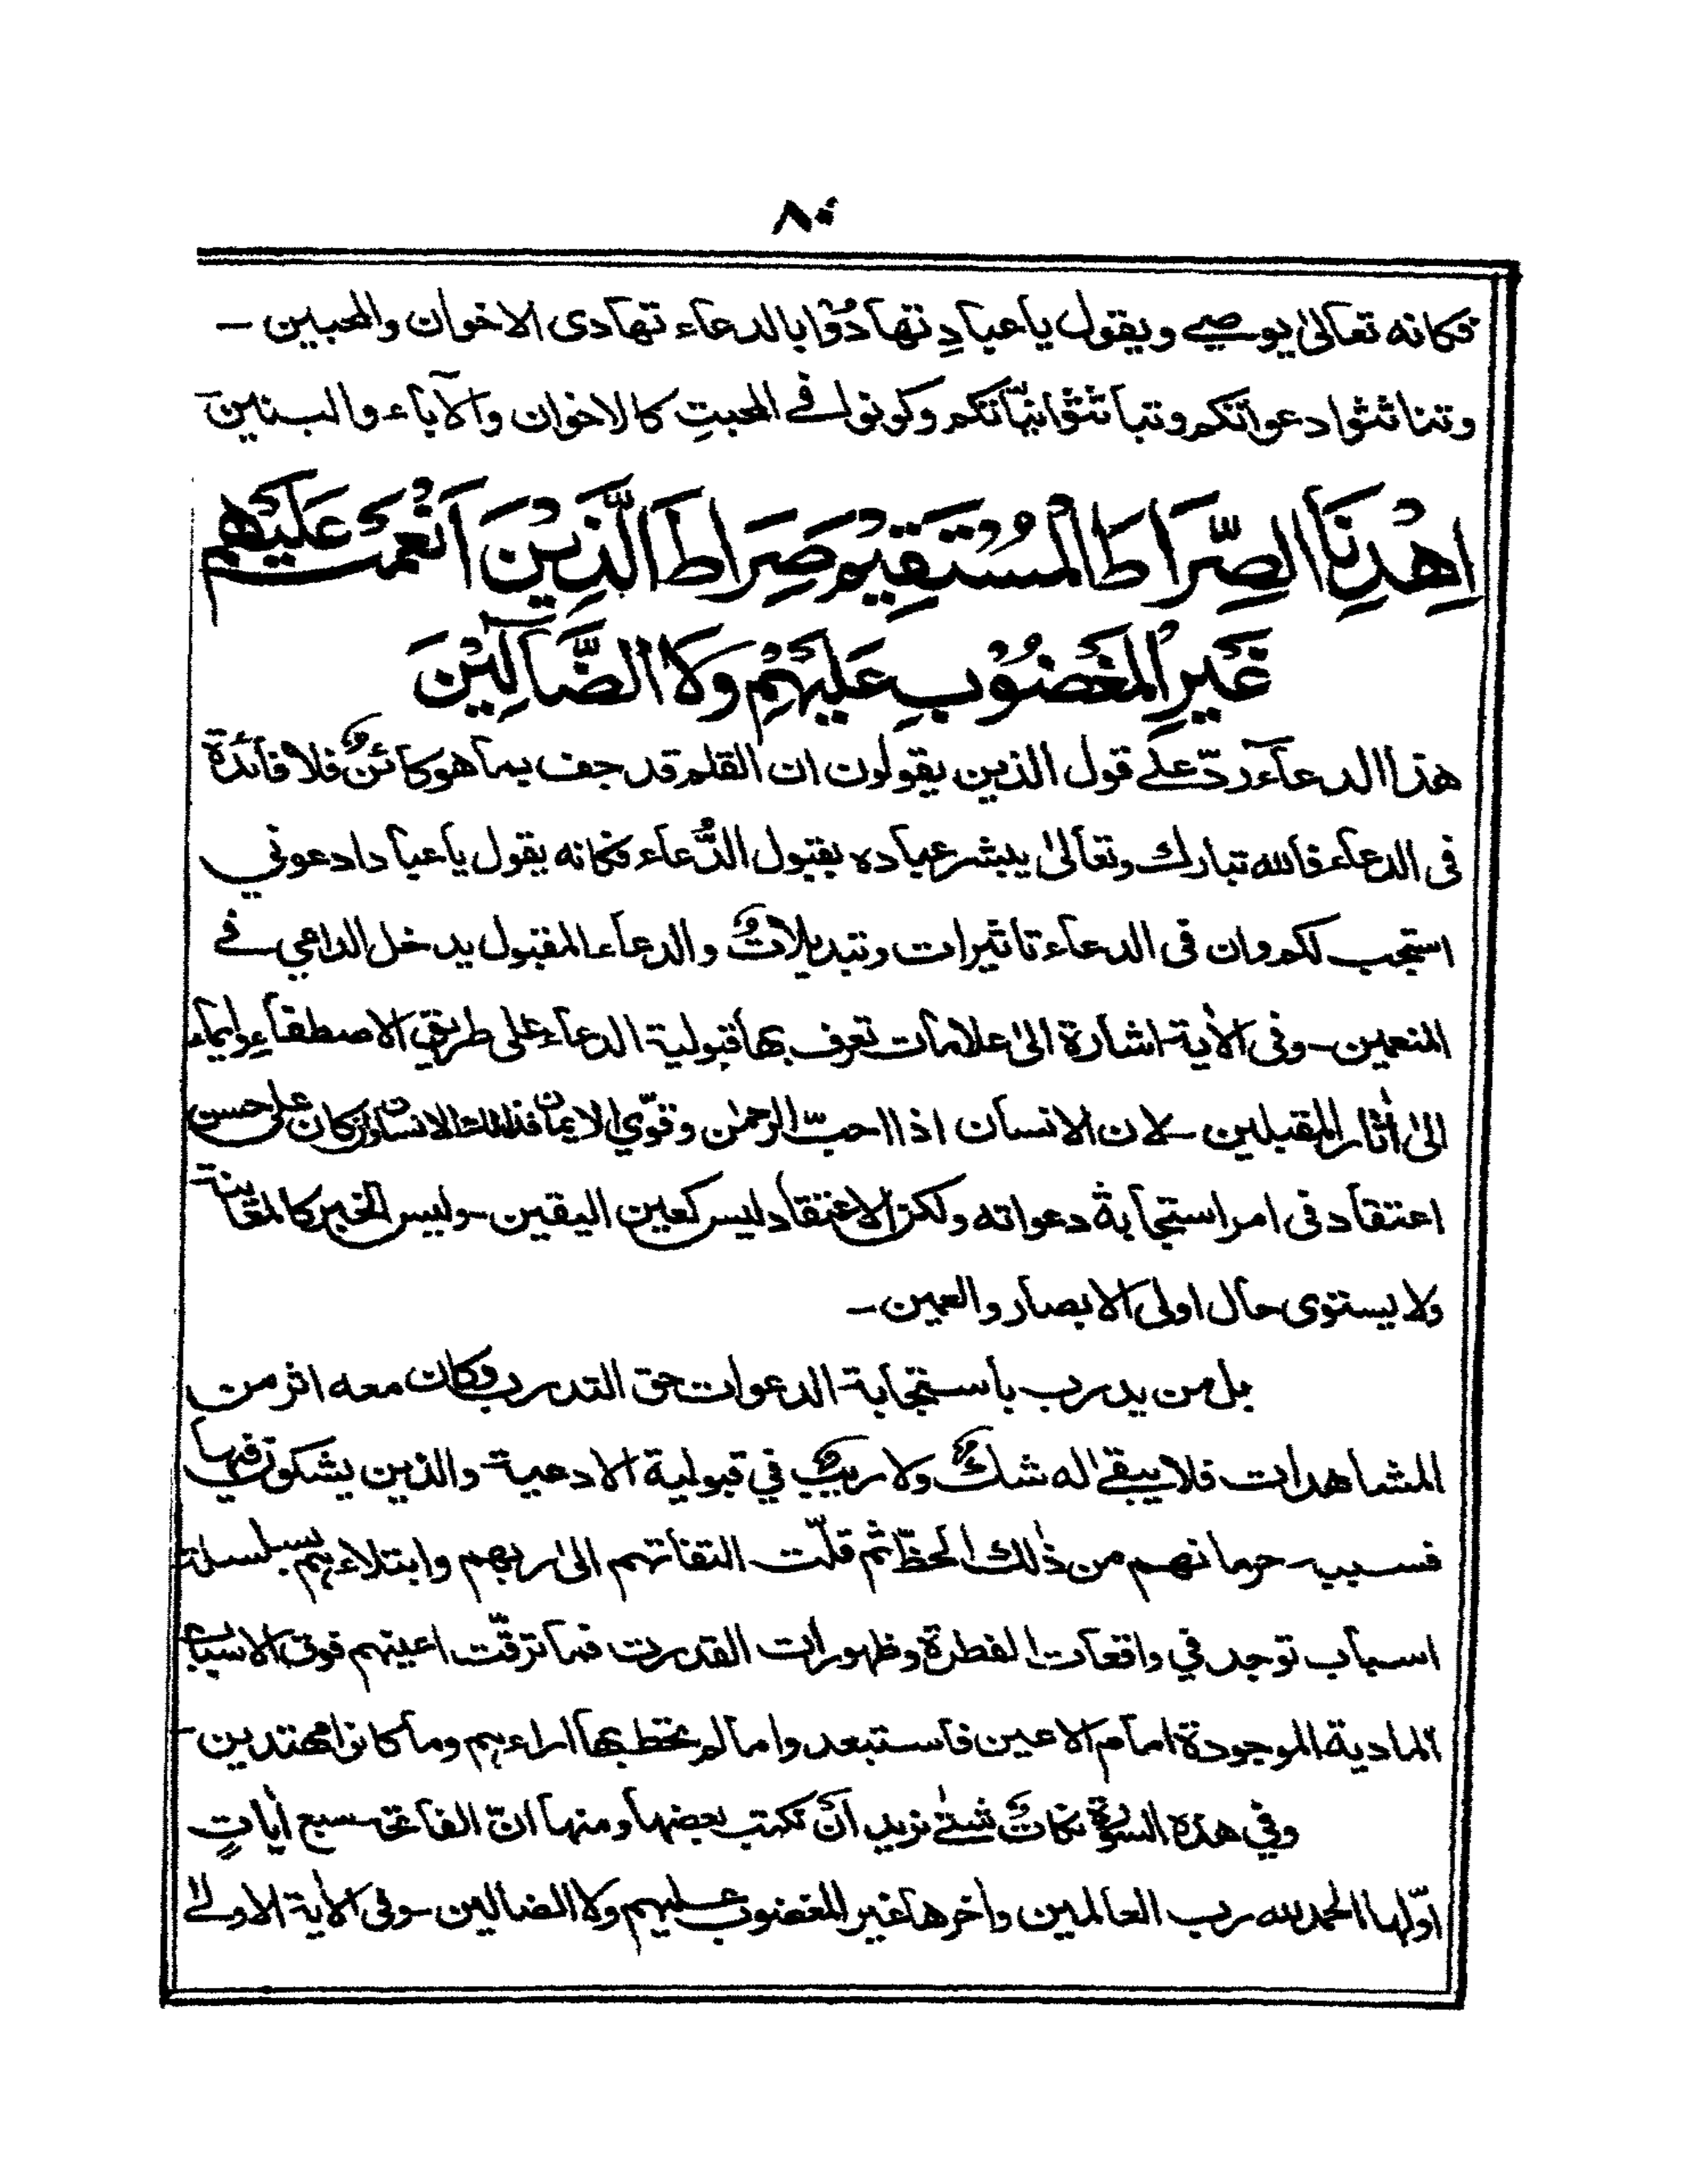 ٨٠
فكانه تعالىٰ يوصے ويقول يا عبادِ تهادُوْا بالدعاء تهادى الاخوان والمحبين ۔
وتناثثوا دعواتكم وتباثثوا نيّاتكم وكونوا فے المحبتِ كالاخوان والآباء والبنين۔
اِهْدِنَا الصِّرَاطَ الْمُسْتَقِيْمَ صِرَاطَ الَّذِيْنَ اَنْعَمْتَ عَلَيْهِمْ
غَيْرِ الْمَغْضُوْبِ عَلَيْهِمْ وَلَا الضَّآلِّيْنَ
هذا الدعآء ردّ علےٰ قول الذين يقولون ان القلم قد جف بما هو كائنٌ فلا فائدة
فى الدعاء فالله تبارك وتعالىٰ يبشر عباده بقبول الدُّعاء فكانه يقول يا عباد ادعوني
استجب لكم وان فى الدعاء تاثيرات وتبديلاتٌ والدعاء المقبول يدخل الداعي فے
المنعمين ۔ وفى الاٰية اشارة الىٰ علامات تعرف بها قبولية الدعاء على طريق الاصطفاءِ وايماء
الىٰ اٰثار المقبلين ۔ لان الانسان اذا احبّ الرحمٰن وقوّي الايمان فذالك الانسان وان كان على حسن
اعتقاد فى امر استجابة دعواته ولكن الاعتقاد ليس كعين اليقين ۔ وليس الخبر كالمعاينة
ولا يستوى حال اولى الابصار والعمين ۔
بل من يدرب باستجابة الدعوات حق التدرب وكان معه اثر من
المشاهدات فلا يبقےٰ له شكٌ ولا ريبٌ في قبولية الادعية والذين يشكون فيها
فسببه حرمانهم من ذٰلك الحظّ ثم قلّت التفاتهم الىٰ ربهم وابتلاءهم بسلسلة
اسباب توجد في واقعات الفطرة وظهورات القدرت فما ترقّت اعينهم فوق الاسباب
المادية الموجودة امام الاعين فاستبعدوا ما لم تحط بها اراءهم وما كانوا مهتدين ۔
وفي هذه السورة نكاتٌ شتےٰ نريد اَنْ نكتب بعضها ومنها انّ الفاتحة سبع اٰياتٍ
اوّلها الحمد لله رب العالمين واٰخرها غير المغضوب عليهم ولا الضالين ۔ وفى الاٰية الاولےٰ